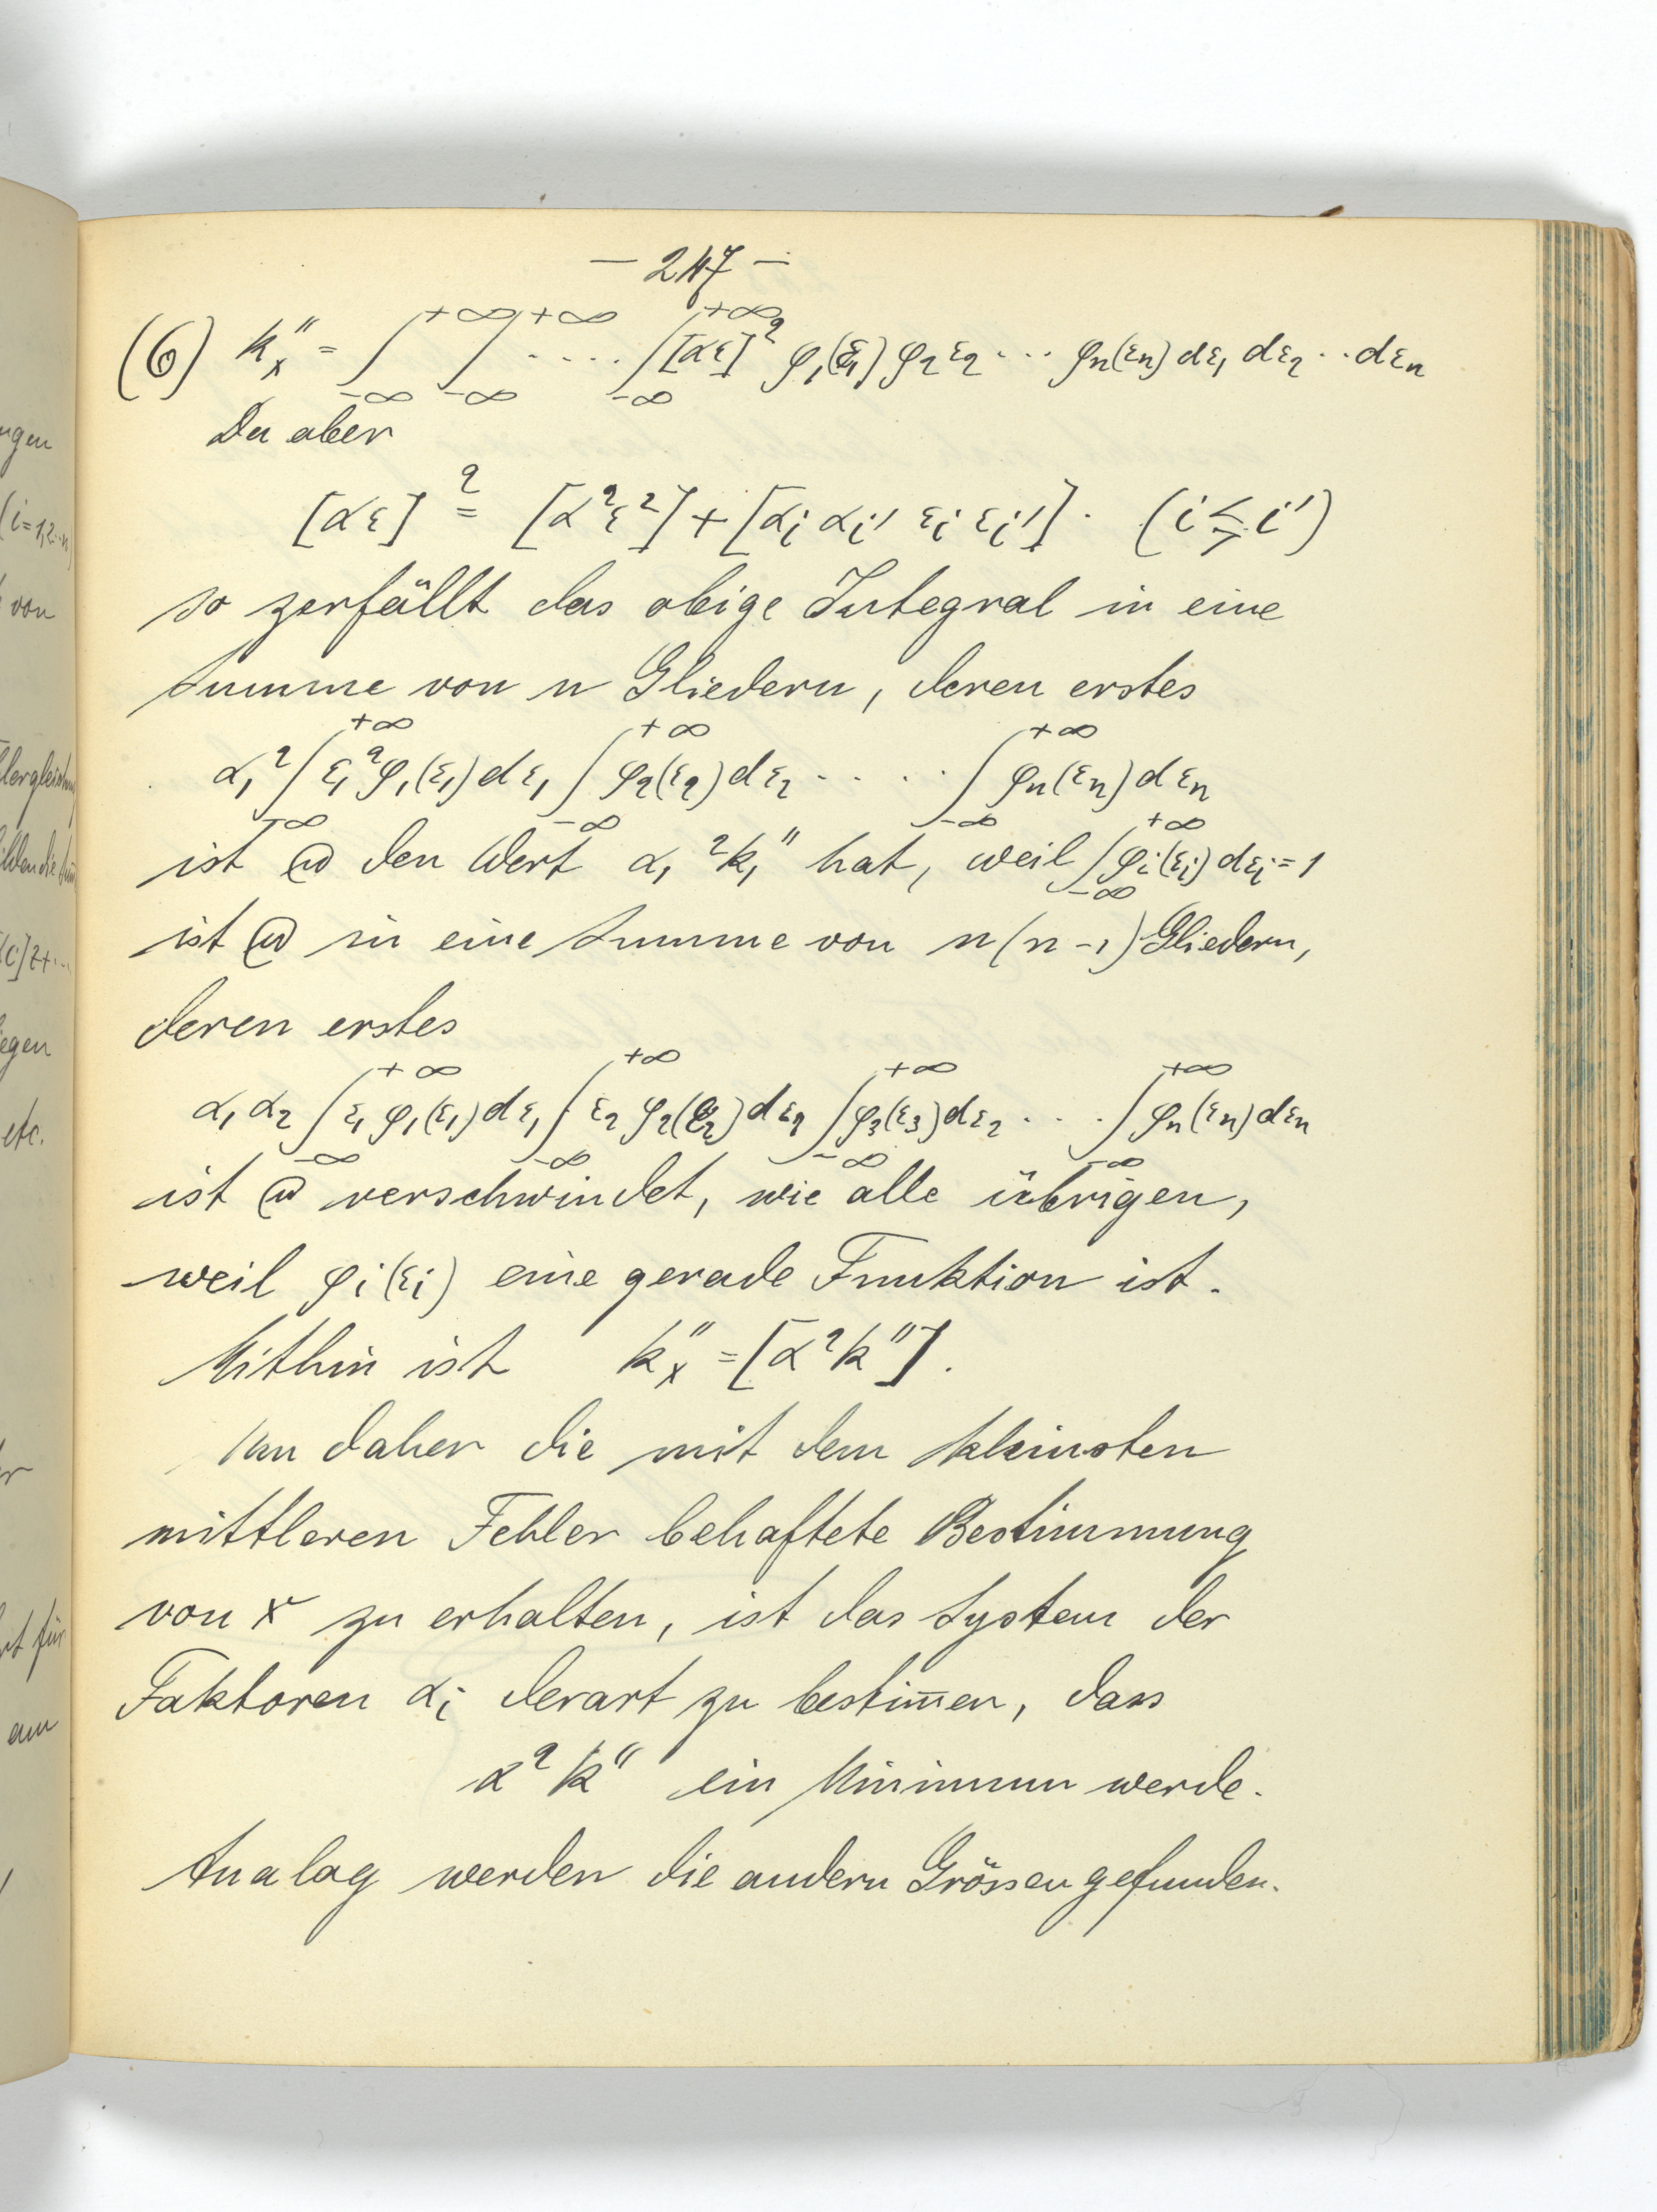 — 247 —
(6) k''ₓ = ∫₋∞^+∞ ∫₋∞^+∞ .... ∫₋∞^+∞ [αε]² φ₁(ε₁) φ₂ ε₂ ... φₙ(εₙ) dε₁ dε₂ .. dεₙ
Da aber
[αε]² = [α²ε²] + [αᵢ αᵢ' εᵢ εᵢ'] . (i ≶ i')
so zerfällt das obige Integral in eine
Summe von n Gliedern, deren erstes
α₁² ∫₋∞^+∞ ε₁² φ₁(ε₁) dε₁ ∫₋∞^+∞ φ₂(ε₂) dε₂ ..... ∫₋∞^+∞ φₙ(εₙ) dεₙ
ist den Wert α₁² k₁'' hat, weil ∫₋∞^+∞ φᵢ(εᵢ) dεᵢ = 1
ist in eine Summe von n(n-1) Gliedern,
deren erstes
α₁ α₂ ∫₋∞^+∞ ε₁ φ₁(ε₁) dε₁ ∫₋∞^+∞ ε₂ φ₂(ε₂) dε₂ ∫₋∞^+∞ φ₃(ε₃) dε₂ ... ∫₋∞^+∞ φₙ(εₙ) dεₙ
ist verschwindet, wie alle übrigen,
weil φᵢ(εᵢ) eine gerade Funktion ist.
Mithin ist k''ₓ = [α² k''].
Um daher die mit dem kleinsten
mittleren Fehler behaftete Bestimmung
von x zu erhalten, ist das System der
Faktoren αᵢ derart zu bestim̅en, dass
α² k'' ein Minimum werde.
Analog werden die andern Grössen gefunden.